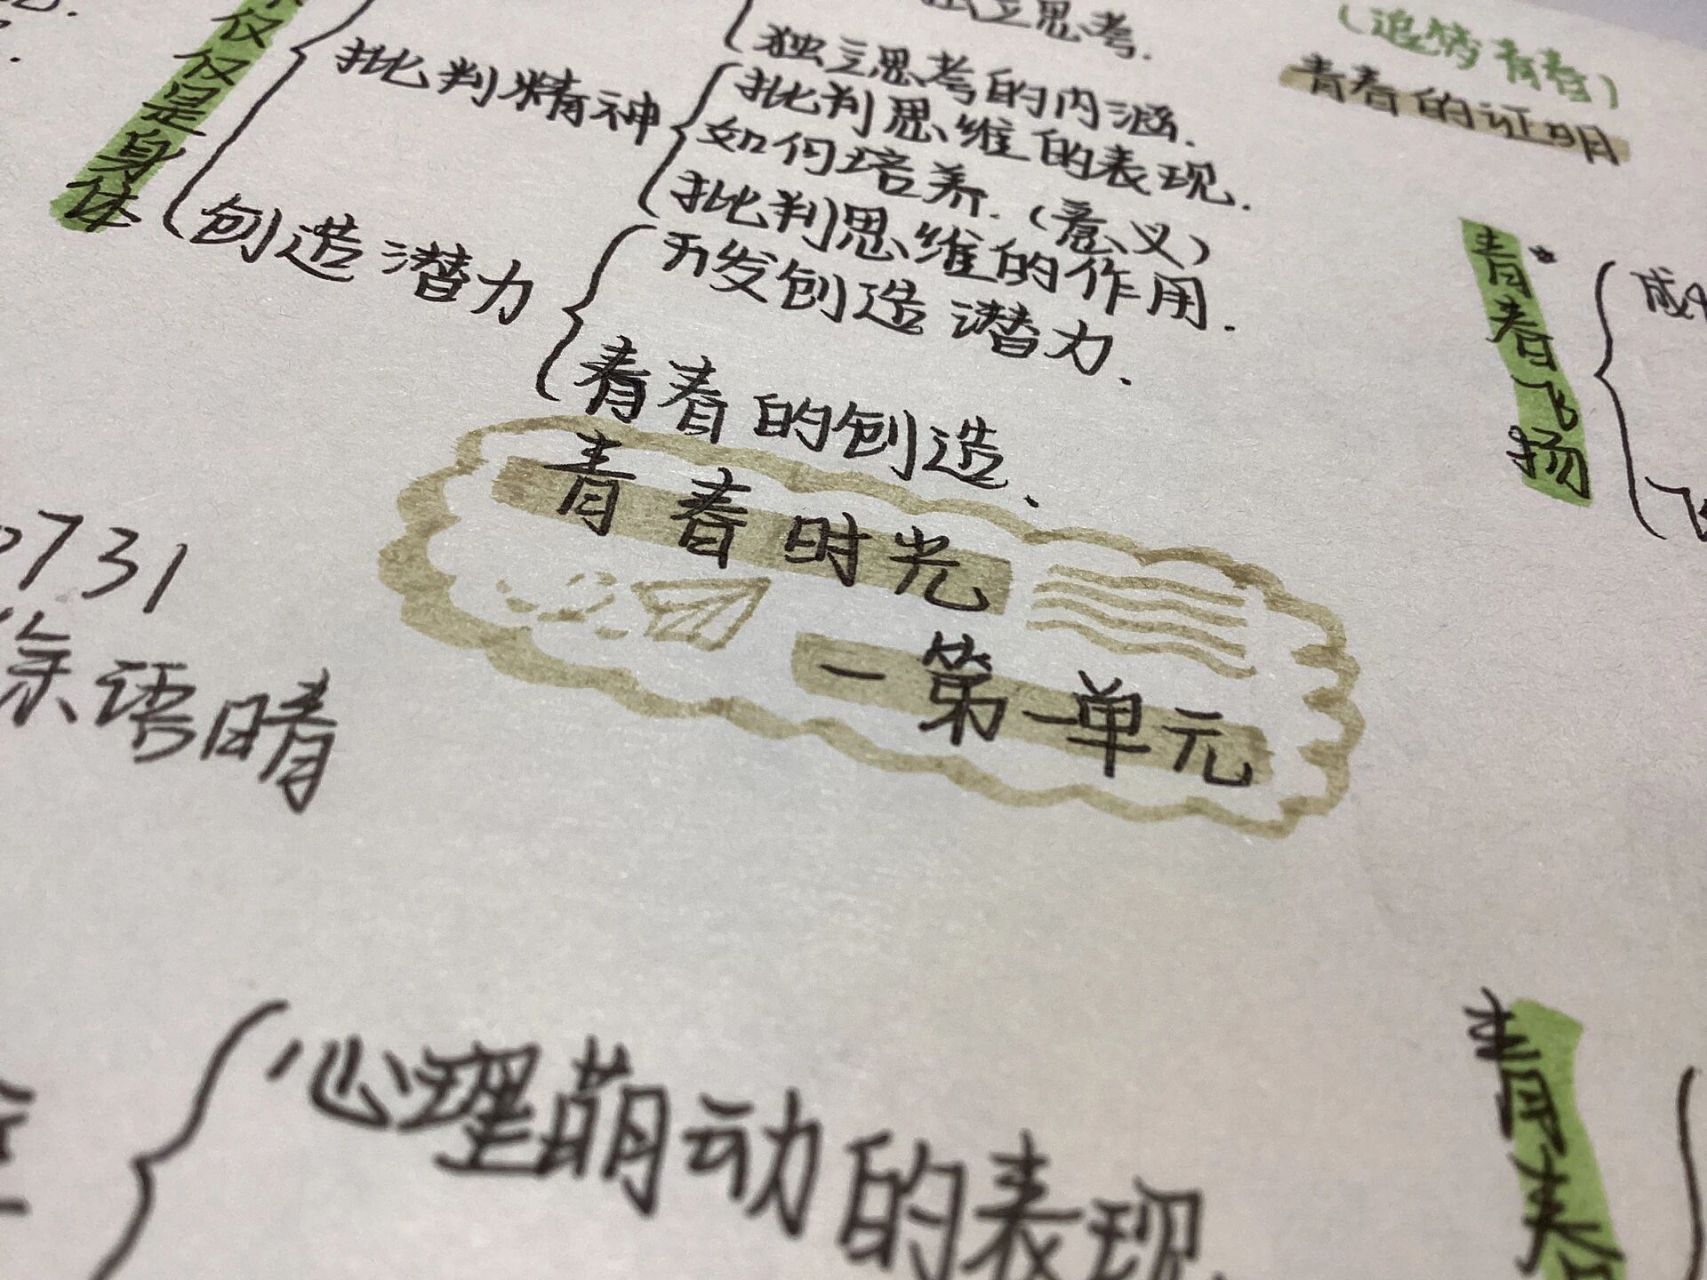 独立思考.
独立思考的内涵.
批判精神
批判思维的表现.
如何培养.(意义)
批判思维的作用.
创造潜力
开发创造潜力.
青春的创造.
仅仅是身体
(追梦青春)
青春的证明
青春飞扬
成
飞
青春时光
-第一单元
0731
徐语晴
心理萌动的表现.
青春